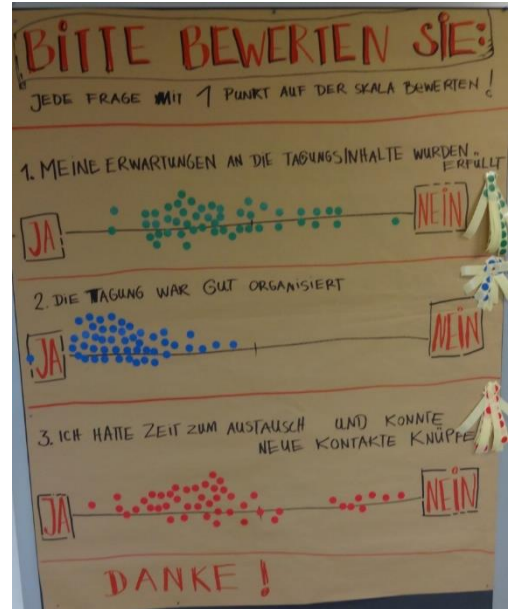 BITTE BEWERTEN SIE:
JEDE FRAGE MIT 1 PUNKT AUF DER SKALA BEWERTEN!
1. MEINE ERWARTUNGEN AN DIE TAGUNGSINHALTE WURDEN
ERFÜLLT
JA NEIN
2. DIE TAGUNG WAR GUT ORGANISIERT
JA NEIN
3. ICH HATTE ZEIT ZUM AUSTAUSCH UND KONNTE
NEUE KONTAKTE KNÜPFE
JA NEIN
DANKE!